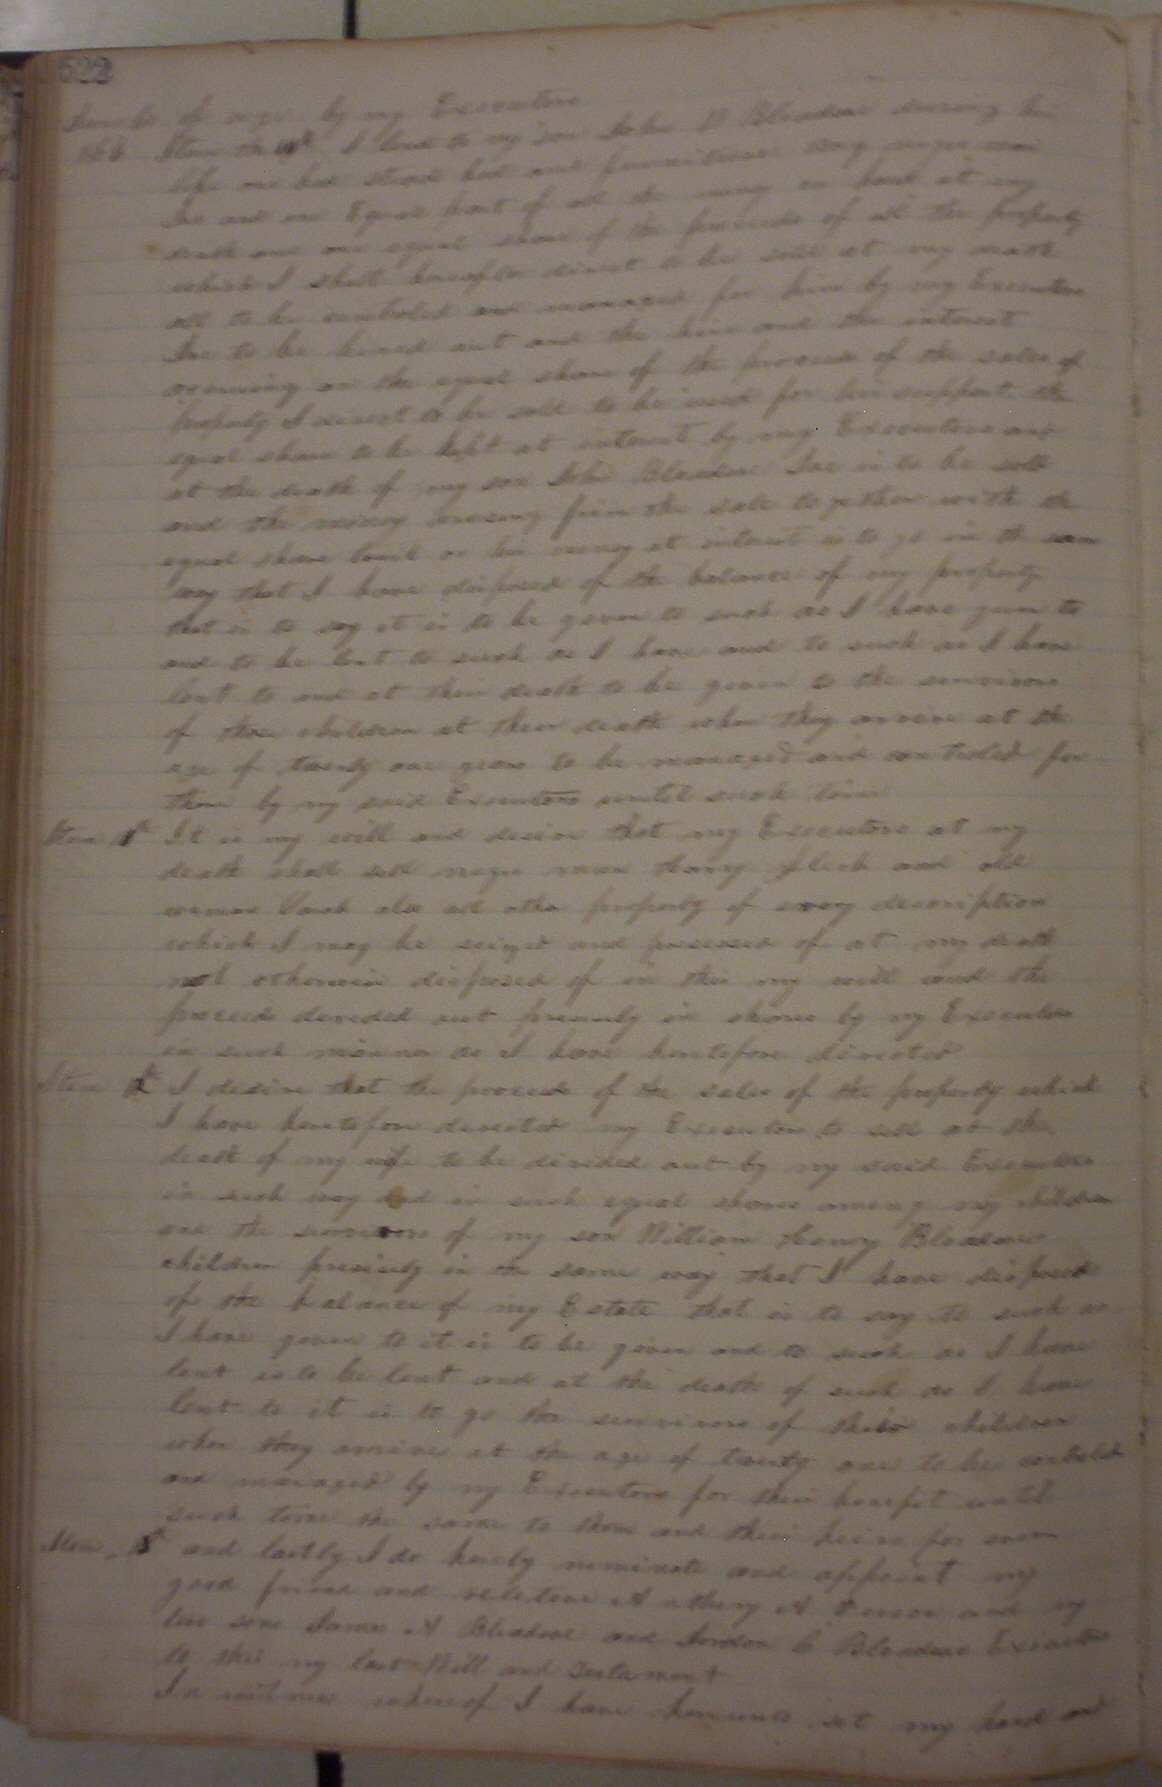 522
of age by my Executors
Item I lend to my son John Bledsoe during his
life one bed stead bed and furniture negro man
Joe and one Equal part of all the money on hand at my
death and one equal share of the proceeds of all the property
which I shall hereafter direct to be sold at my death
all to be controled and managed for him by my Executors
Joe to be hired out and the hire and the interest
accruing on the equal share of the proceeds of the sales of
property I direct to be sold to be used for his support the
equal share to be kept at interest by my Executors and
at the death of my son John Bledsoe Joe is to be sold
and the money arising from the sale together with the
equal share or his money at interest is to go in the same
way that I have disposed of the balance of my property
that is to say it is to be given to such as I have given to
and to be lent to such as I have and to such as I have
lent to and at their death to be given to the survivors
of their children at their death when they arrive at the
age of twenty one years to be managed and controled for
them by my said Executors until such time
Item It is my will and desire that my Executors at my
death shall sell negro man Harry and old
woman also all other property of every description
which I may be seized and possessed of at my death
not otherwise disposed of in this my will and the
proceeds devided out precisely in shares by my Executors
in such manner as I have heretofore directed
Item I desire that the proceeds of the sales of the property which
I have heretofore directed my Executors to sell at the
death of my wife to be divided out by my said Executors
in such way and in such equal shares among my children
and the survivors of my son William Henry Bledsoes
children precisely in the same way that I have disposed
of the balance of my Estate that is to say to such as
I have given to it is to be given and to such as I have
lent is to be lent and at the death of such as I have
lent to it is to go the survivors of their children
when they arrive at the age of twenty one to be controled
and managed by my Executors for their benefit until
such time the same to them and their heirs for ever
Item and lastly I do hereby nominate and appoint my
good friend and relative Anthony A and my
two sons James A Bledsoe and Jordon C Bledsoe Executors
to this my last Will and Testament
In witness whereof I have hereunto set my hand and